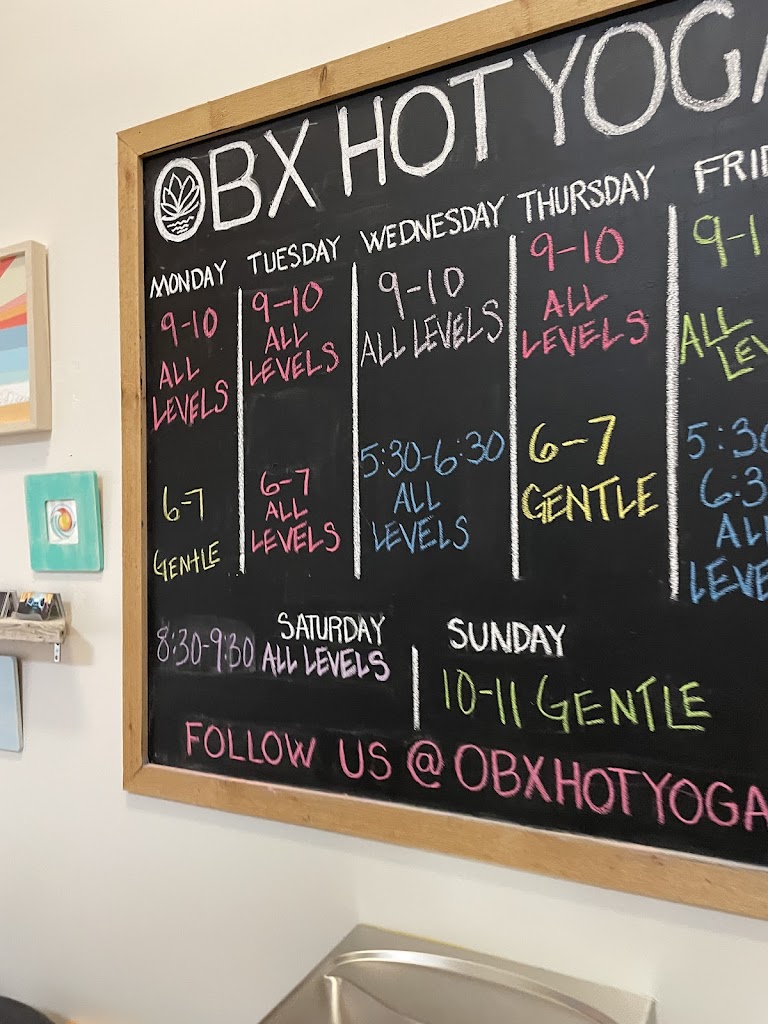 OBX HOT YOGA
MONDAY
9-10
ALL
LEVELS
6-7
GENTLE
TUESDAY
9-10
ALL
LEVELS
6-7
ALL
LEVELS
WEDNESDAY
9-10
ALL LEVELS
5:30-6:30
ALL
LEVELS
THURSDAY
9-10
ALL
LEVELS
6-7
GENTLE
FRID
9-1
ALL
LEV
5:30
6:3
AL
LEVE
SATURDAY
8:30-9:30 ALL LEVELS
SUNDAY
10-11 GENTLE
FOLLOW US @OBXHOTYOGA